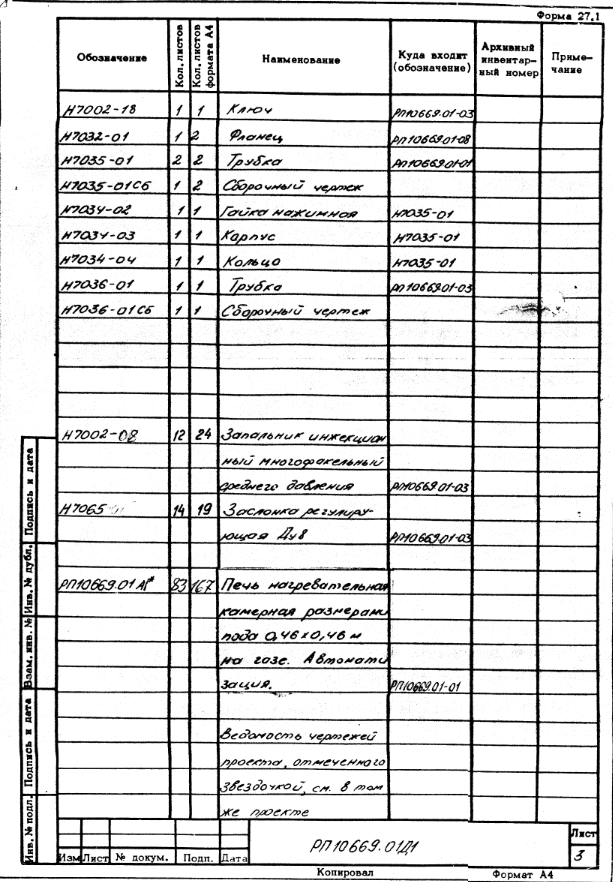 Форма 27.1
Обозначение Кол. листов Кол. листов формата А4 Наименование Куда входит (обозначение) Архивный инвентарный номер Примечание
Н7002-18 1 1 Ключ РП10669.01-03
Н7032-01 1 2 Фланец РП10669.01-08
Н7035-01 2 2 Трубка РП10669.01-01
Н7035-01СБ 1 2 Сборочный чертеж
Н7034-02 1 1 Гайка нажимная Н7035-01
Н7034-03 1 1 Корпус Н7035-01
Н7034-04 1 1 Кольцо Н7035-01
Н7036-01 1 1 Трубка РП10669.01-03
Н7036-01СБ 1 1 Сборочный чертеж
Н7002-08 12 24 Запальник инжекцион
ный многофакельный
среднего давления РП10669.01-03
Н7065 14 19 Заслонка регулиру-
ющая Ду8 РП10669.01-03
РП10669.01 83 167 Печь нагревательная
камерная размерами
пода 0,46х0,46 м
на газе. Автомати
зация. РП10669.01-01
Ведомость чертежей
проекта, отмеченного
звездочкой, см. в том
же проекте
Инв. № подл. Подпись и дата Взам. инв. № Инв. № дубл. Подпись и дата
РП10669.01Д1
Лист
3
Изм Лист № докум. Подп. Дата
Копировал Формат А4